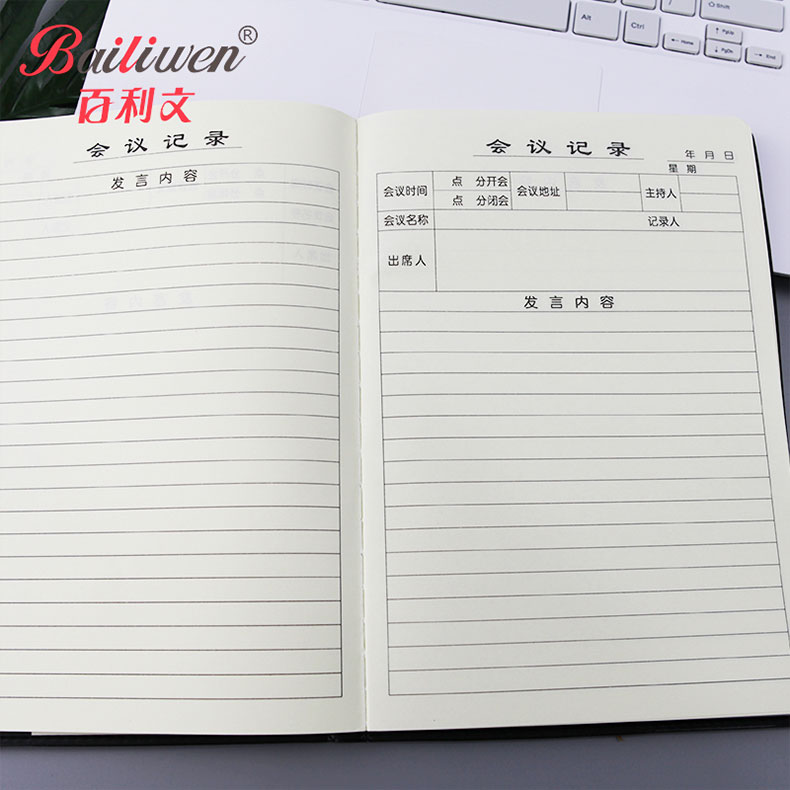 Bailiwen®
百利文
会议记录
发言内容
会议记录
年 月 日
星期
会议时间 点 分开会 会议地址 主持人
点 分闭会
会议名称 记录人
出席人
发言内容
Alt
Ctrl
Shift
Home
PgUp
PgDn
End